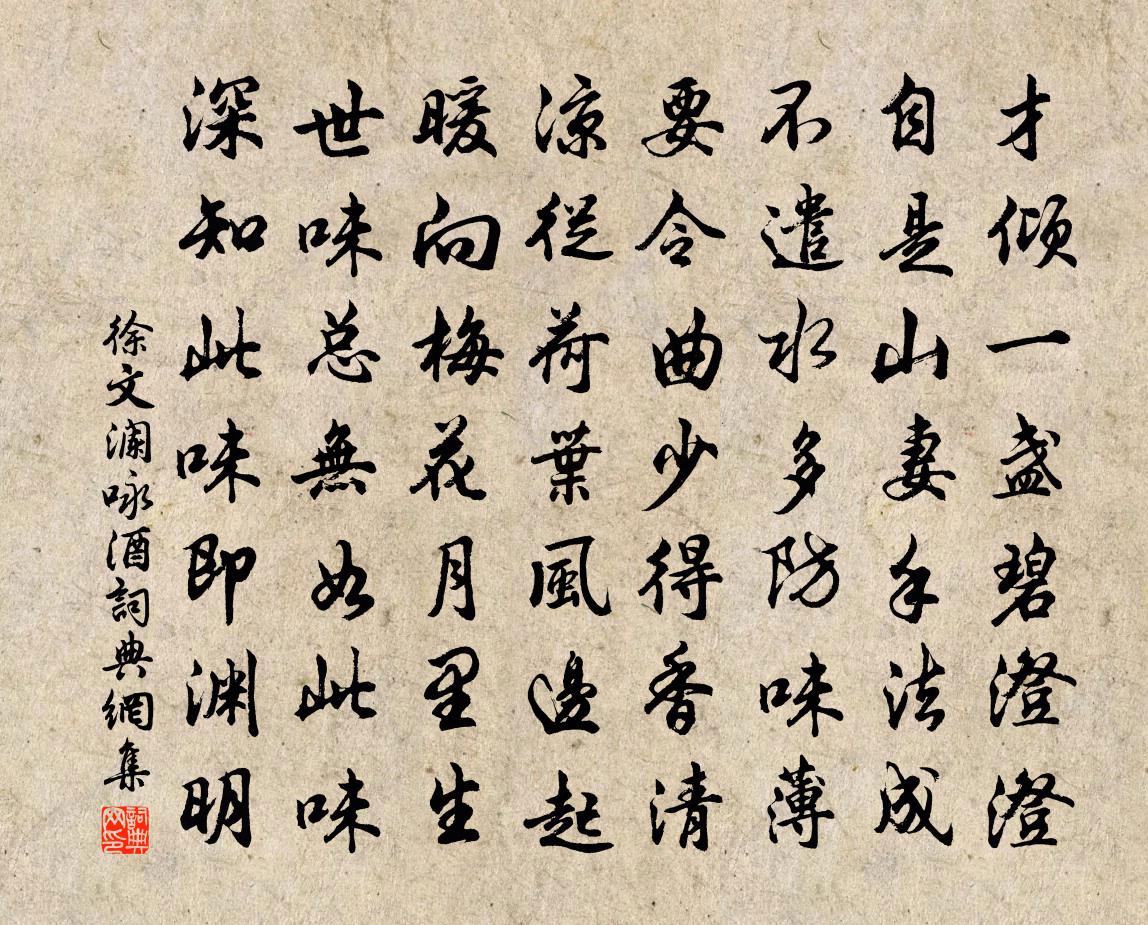 才倾一盏碧澄澄
自是山妻手法成
不遣水多防味薄
要令曲少得香清
凉從荷葉風邊起
暖向梅花月里生
世味总無如此味
深知此味即渊明
徐文澜咏酒詞典網集
詞典网印